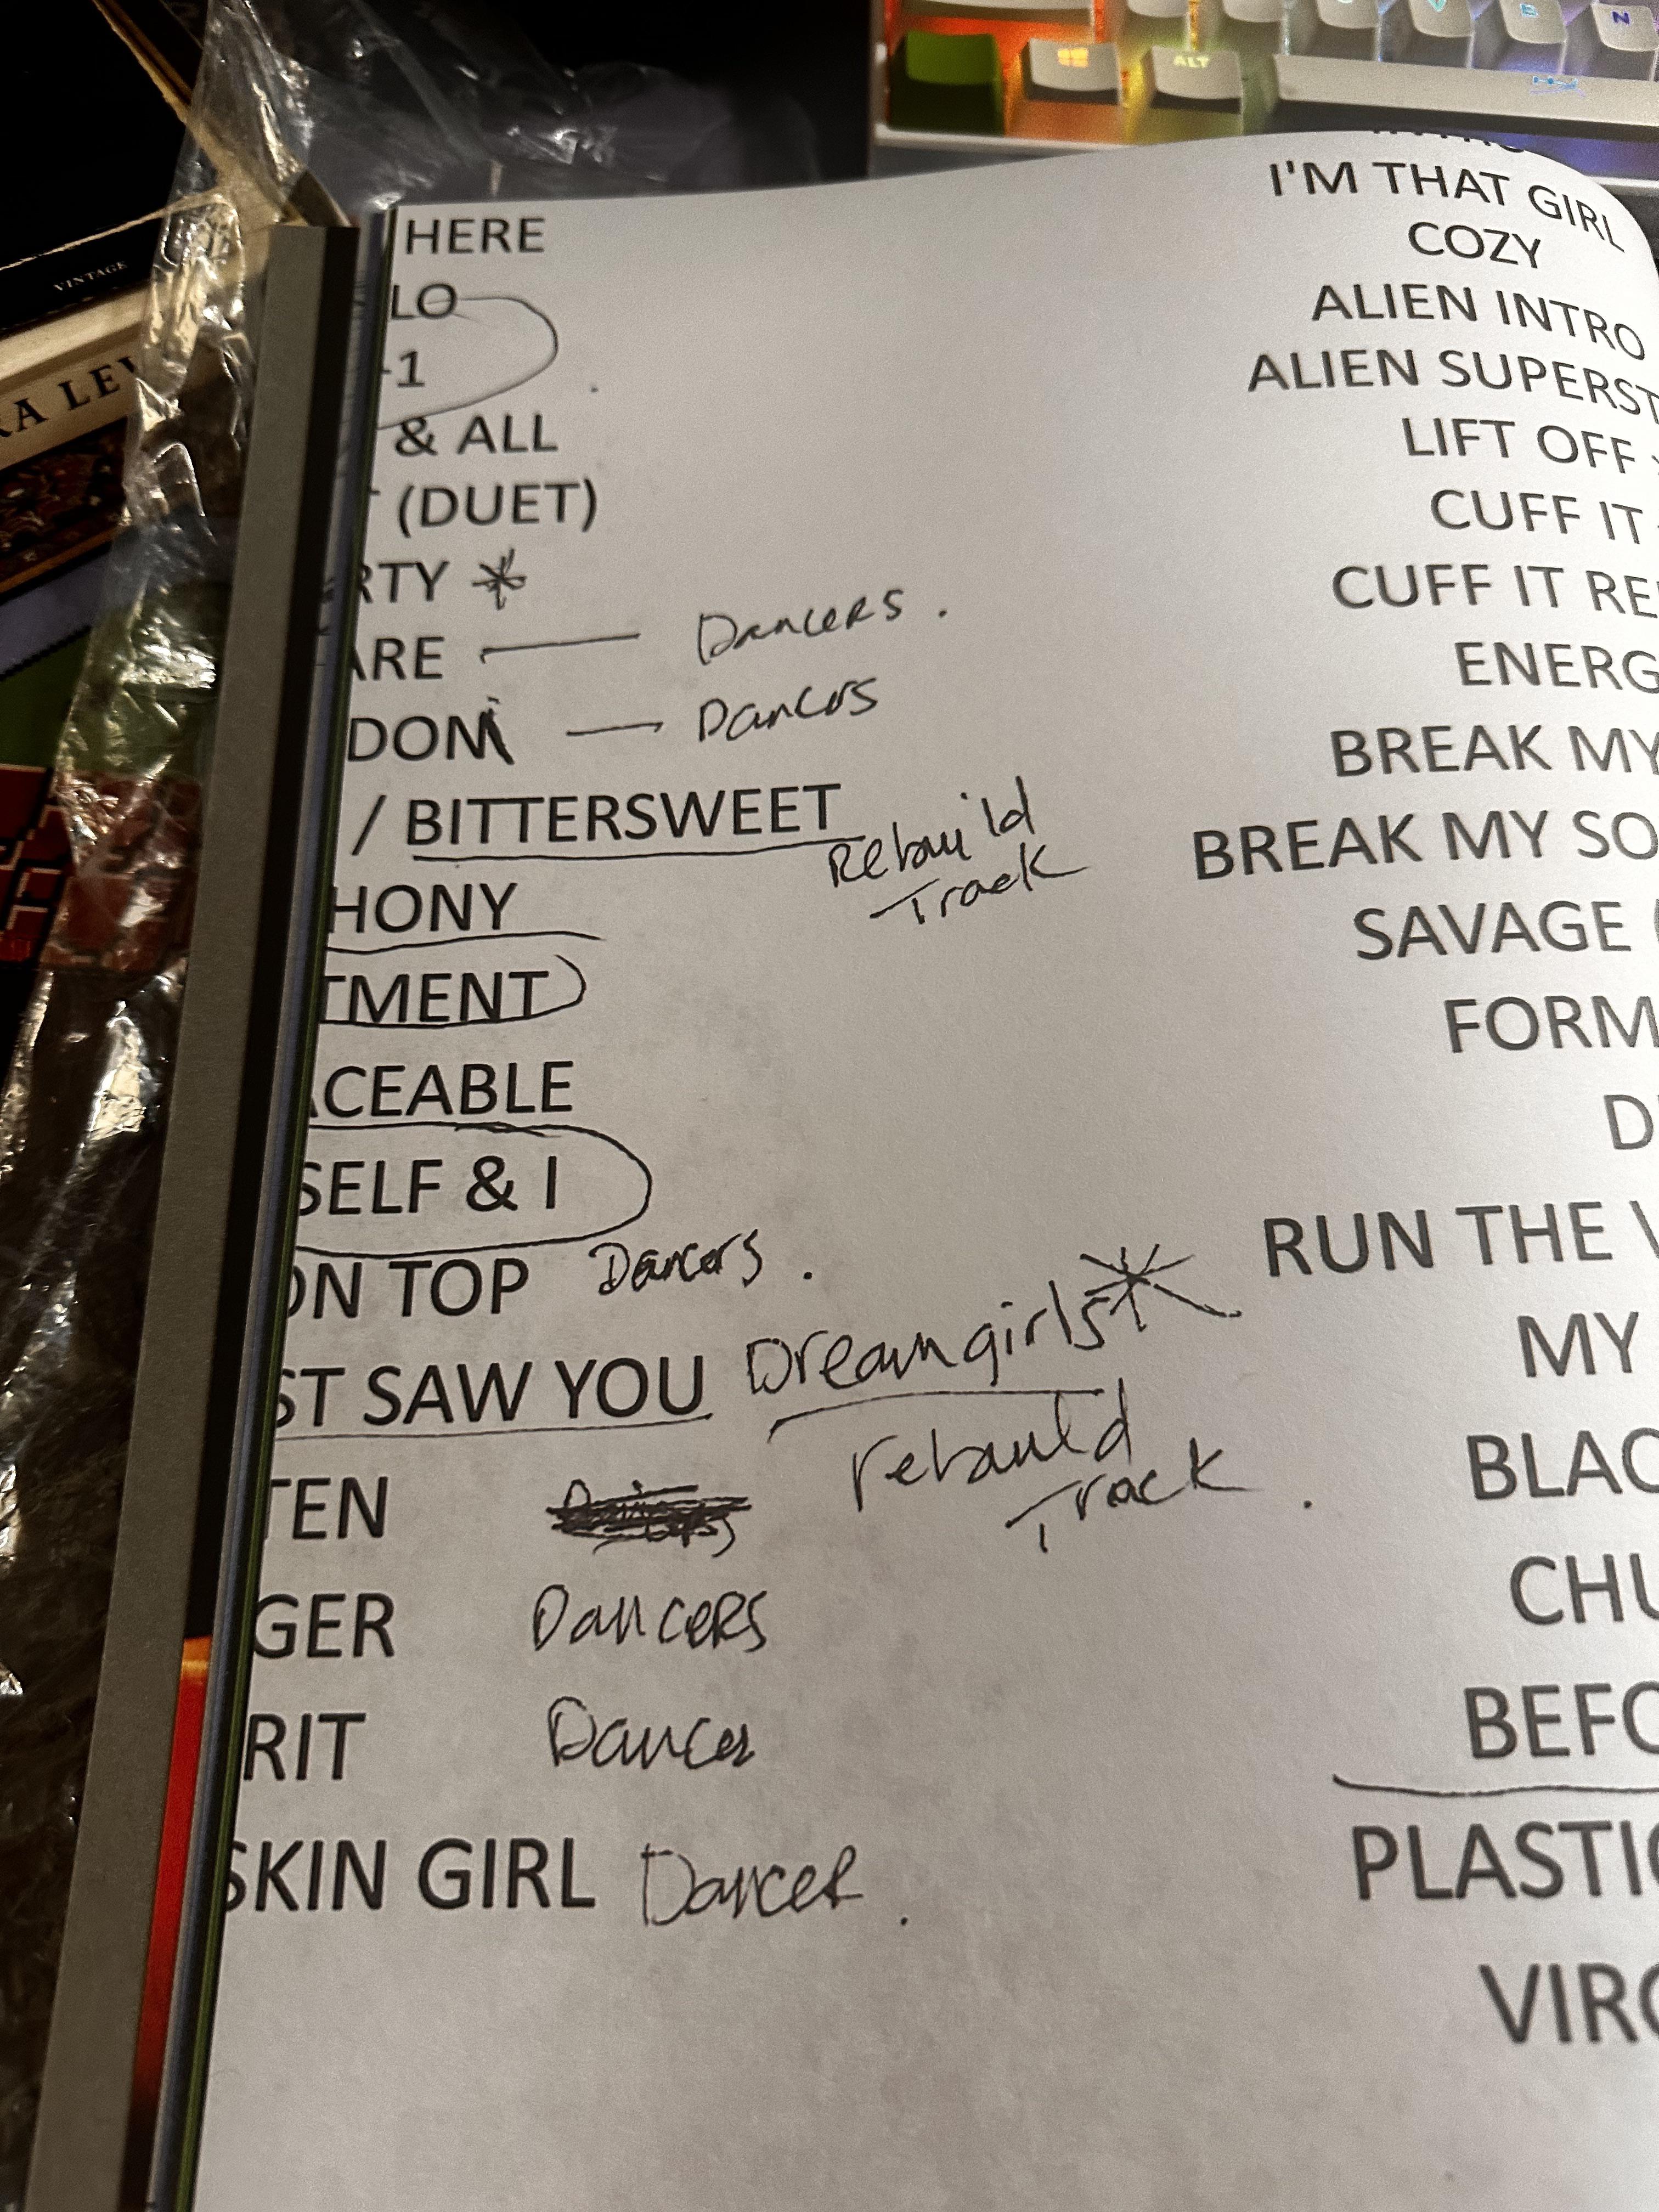 ALT
C
V
B
N
VINTAGE
RA LE
HERE
LO
-1
& ALL
(DUET)
RTY *
ARE — Dancers.
DONi — Dancers
/ BITTERSWEET
Rebuild
Track
HONY
TMENT
ACEABLE
SELF & I
ON TOP Dancers.
ST SAW YOU Dreamgirls*
rebuild
Track.
TEN
GER Dancers
RIT Dancer
SKIN GIRL Dancer.
I'M THAT GIRL
COZY
ALIEN INTRO
ALIEN SUPERST
LIFT OFF
CUFF IT
CUFF IT RE
ENERG
BREAK MY
BREAK MY SO
SAVAGE (
FORM
D
RUN THE
MY
BLAC
CHU
BEFO
PLASTIC
VIRG